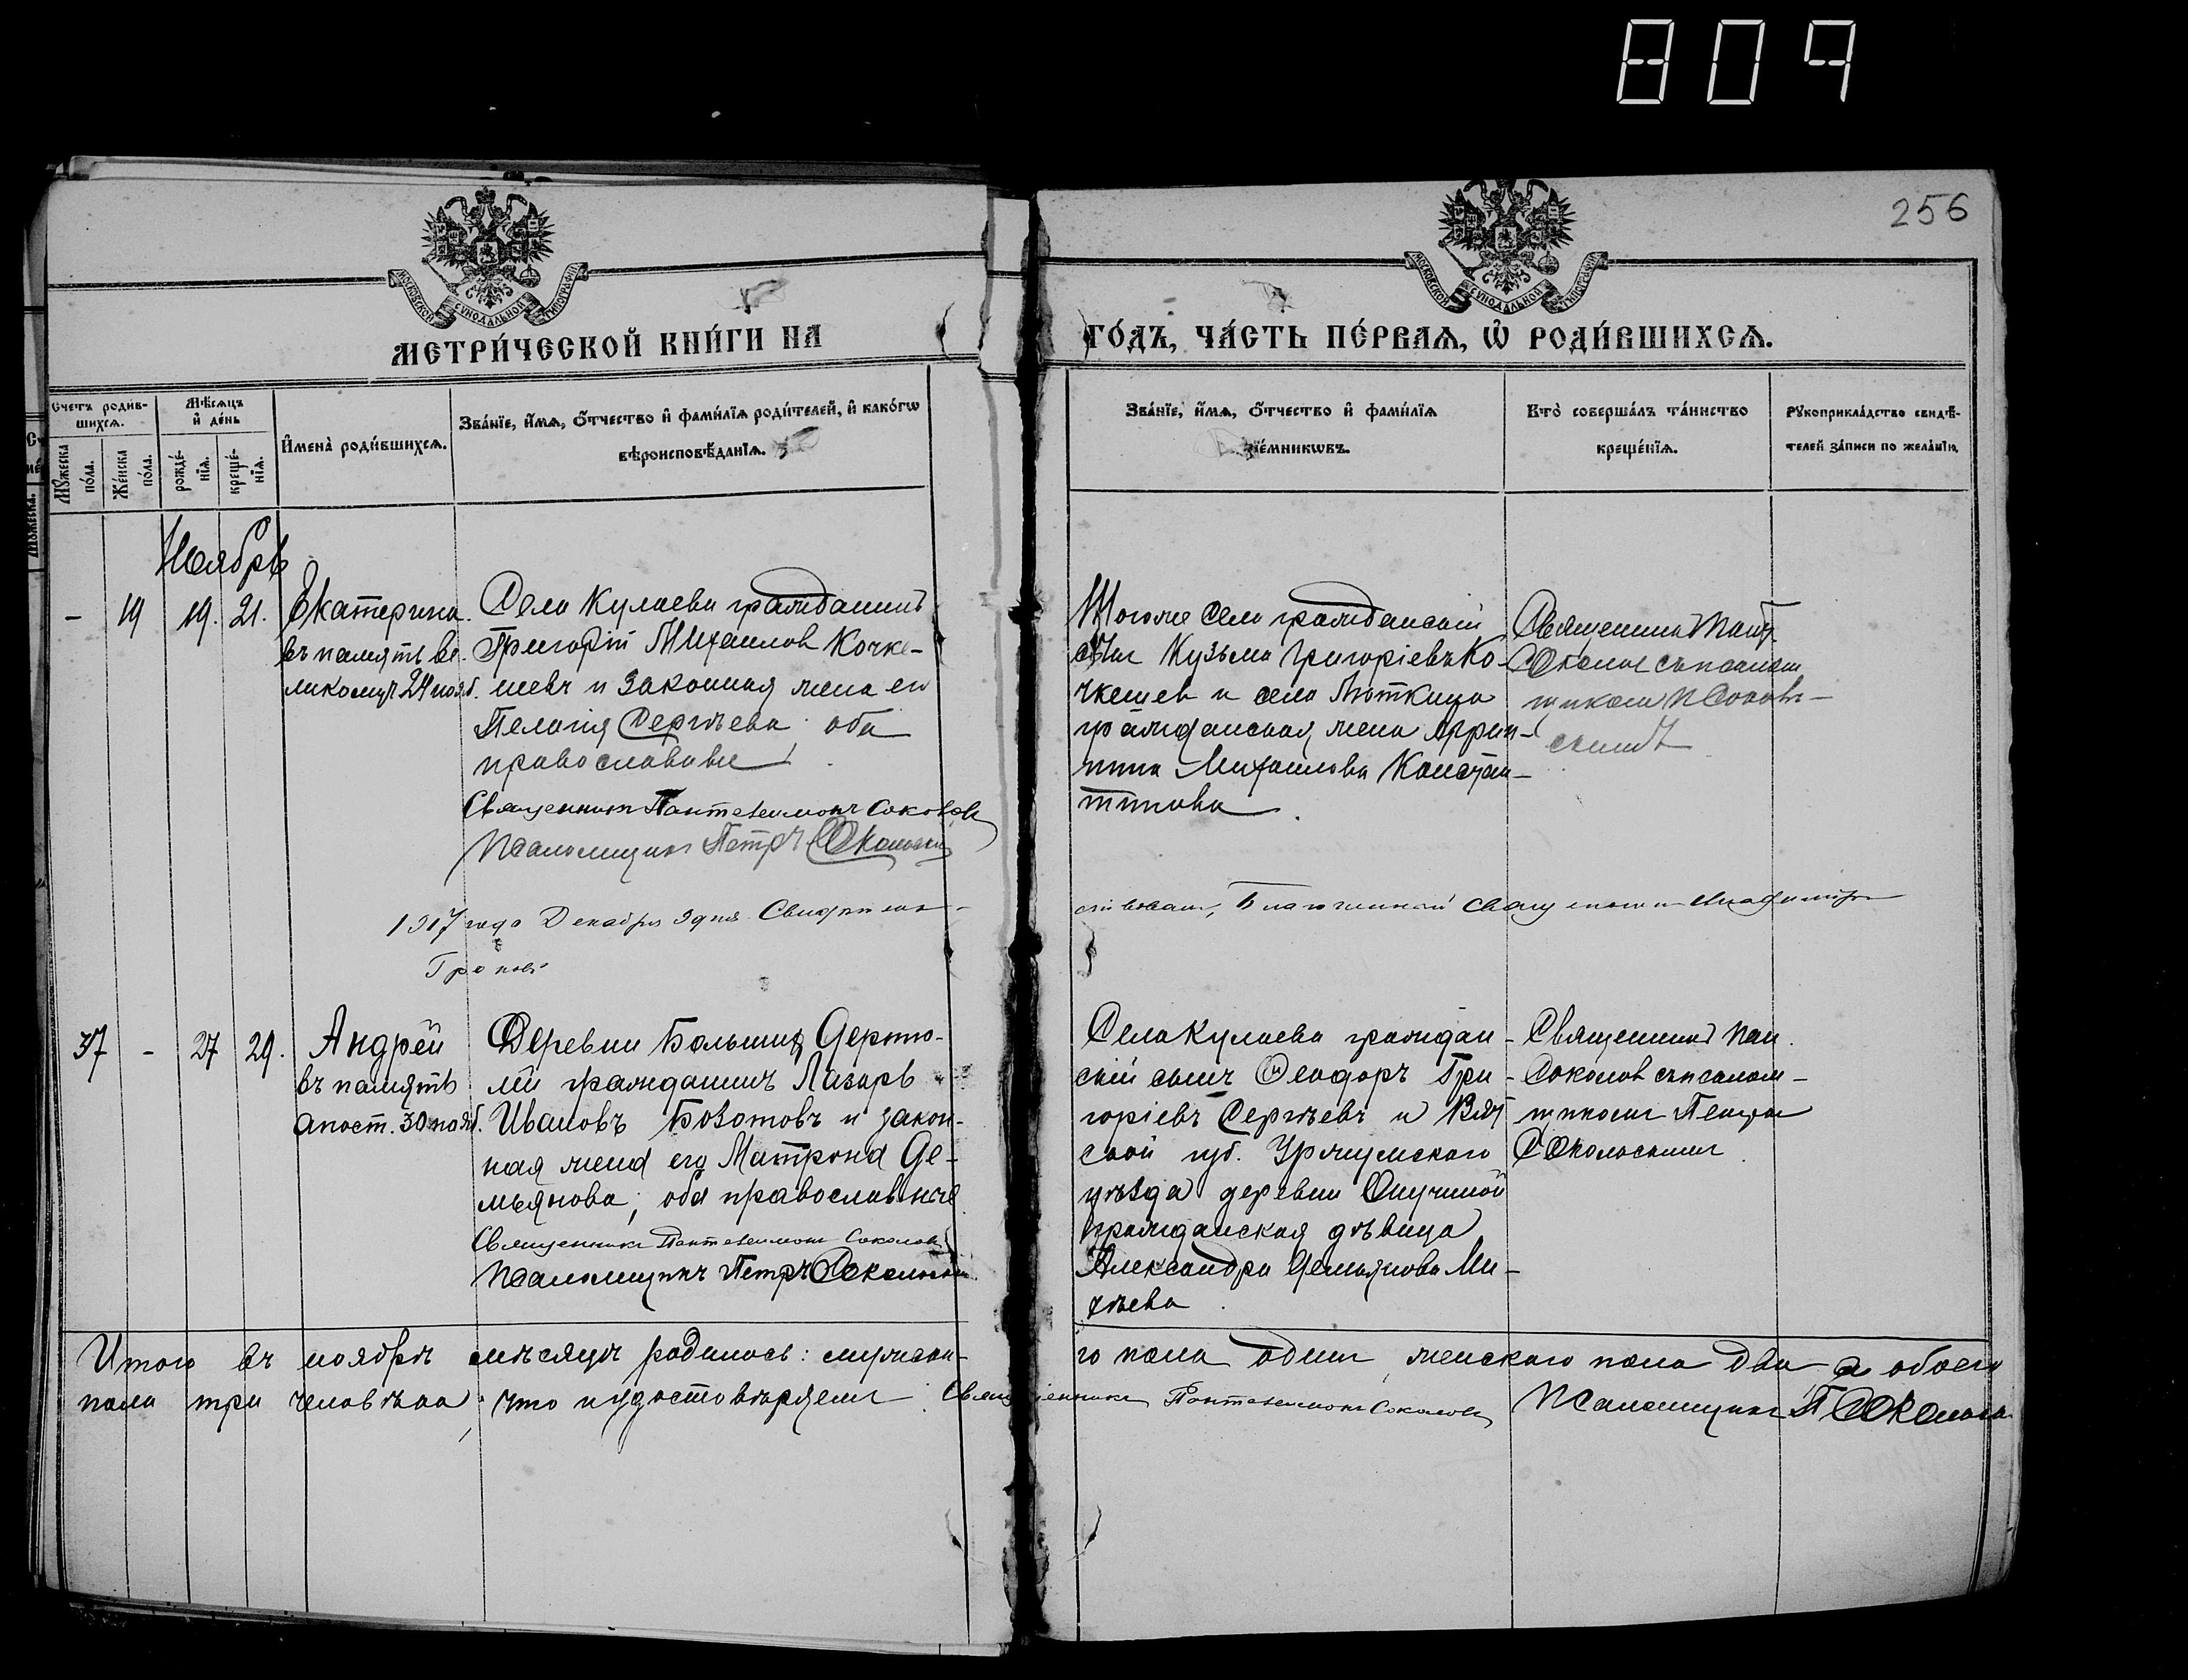 809
256
МОСКОВСКОЙ СУНОДАЛЬНОЙ ТИПОГРАФІИ
МОСКОВСКОЙ СУНОДАЛЬНОЙ ТИПОГРАФІИ
МЕТРИ́ЧЕСКОЙ КНИ́ГИ НА
ГО́ДЪ, ЧА́СТЬ ПЕ́РВАѦ, Ѡ҆ РОДИ́ВШИХСѦ.
Счетъ роди́в-
шихсѧ.
Мѣ́сѧцъ
и҆ де́нь
Мꙋ́жеска
по́ла.
Же́нска
по́ла.
рожде́-
нїѧ.
креще́-
нїѧ.
И҆мена̀ роди́вшихсѧ.
Зва́нїе, и҆́мѧ, ѻ҆́тчество и҆ фами́лїѧ роди́телей, и҆ како́гѡ
вѣроисповѣ́данїѧ.
Зва́нїе, и҆́мѧ, ѻ҆́тчество и҆ фами́лїѧ
їе́мникѡвъ.
Кто̀ соверша́лъ та́инство
креще́нїѧ.
Рꙋкоприкла́дство свидѣ́-
телей за́писи по жела́нїю.
Ноябрь
- 19 19. 21. Екатерина.
въ память ве-
ликомуч. 24 нояб.
Села Кулаева гражданинъ
Григорій Михаилов Кочке-
шевъ и законная жена его
Пелагія Сергѣева оба
православные
Священникъ Пантелеимонъ Соколовъ
Псаломщикъ Петръ Сокольскій
Тогоже села гражданскій
сынъ Кузьма Григоріевъ Ко-
чкешев и села
гражданская жена Агрип-
пина Михаилова Констан-
тинова.
Священникъ Пант.
Соколов съ псалом
щиком П Соколь-
скимъ
1917 года Декабря 9 дня Свидѣтель-
ствовалъ, Благочинный священникъ Владимиръ
37 - 27 29. Андрей
въ память
Апост. 30 нояб.
Деревни Большихъ Дерты-
лей гражданинъ Лазарь
Ивановъ Бозотовъ и закон-
ная жена его Матрона Де-
мьянова, оба православные
Священникъ Пантелеимонъ Соколовъ
Псаломщикъ Петръ Сокольскій.
Села Кулаева граждан-
скій сынъ Ѳеодоръ Гри-
горіевъ Сергѣевъ и Вят
ской губ. Уржумскаго
уѣзда деревни
гражданская дѣвица
Александра Демьянова Ми-
хѣева.
Священникъ Пан.
Соколов съ псалом-
щикомъ Петром
Сокольскимъ.
Итого въ ноябрѣ мѣсяцѣ родилось: мужска-
го пола одинъ, женскаго пола два, а обоего
пола три человѣка, что и удостовѣряемъ. Священникъ Пантелеимонъ Соколовъ Псаломщикъ П Сокольск